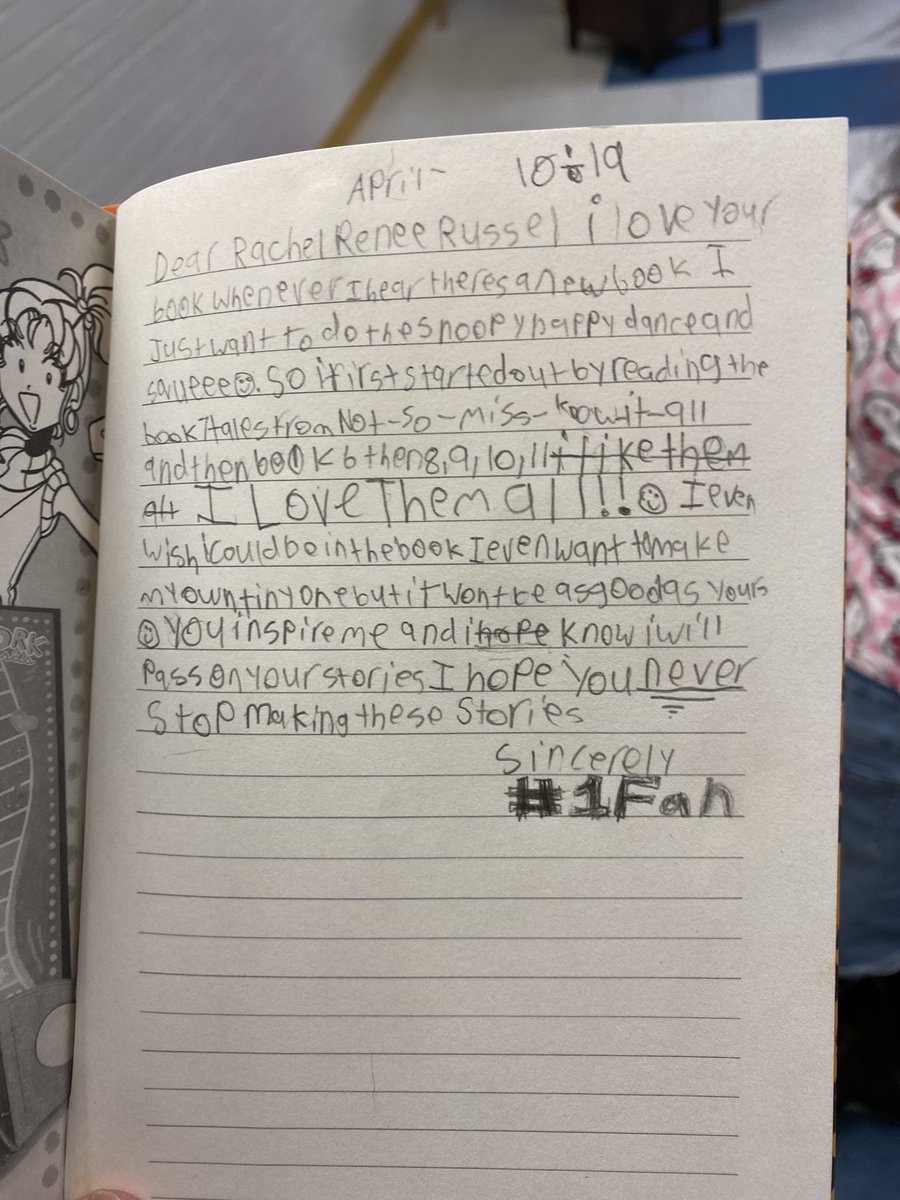 April- 10÷19
Dear Rachel Renee Russel i love your
book whenever I hear theres a new book I
Just want to do the snoopy happy dance and
squeee☺. So i first started out by reading the
book 7 tales from Not-So-Miss-know-it-all
and then book 6 then 8,9,10,11 i like them
all I Love Them all!!! ☺ I even
wish i could be in the book I even want to make
my own tiny one but it wont be as good as yours
☺ You inspire me and i hope know i will
Pass on your stories I hope you never
Stop making these Stories
Sincerely
#1Fan
ORK